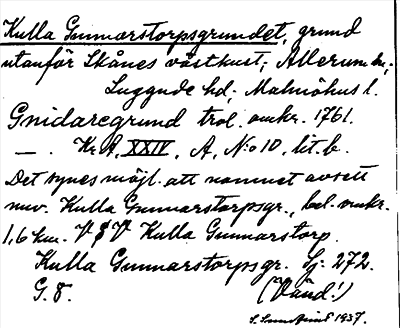 Kulla Gunnarstorpsgrundet, grund
utanför Skånes västkust; Allerum sn,
Luggude hd, Malmöhus l.
Gnidaregrund trol. omkr. 1761.
— . Kr. A, XXIV, A, No 10, lit. b.
Det synes möjl. att namnet avsett
nuv. Kulla Gunnarstorpsgr., bel. omkr.
1,6 km. V §V Kulla Gunnarstorp.
Kulla Gunnarstorpsgr. Sj. 272.
G. 8. (Vänd!)
1937.